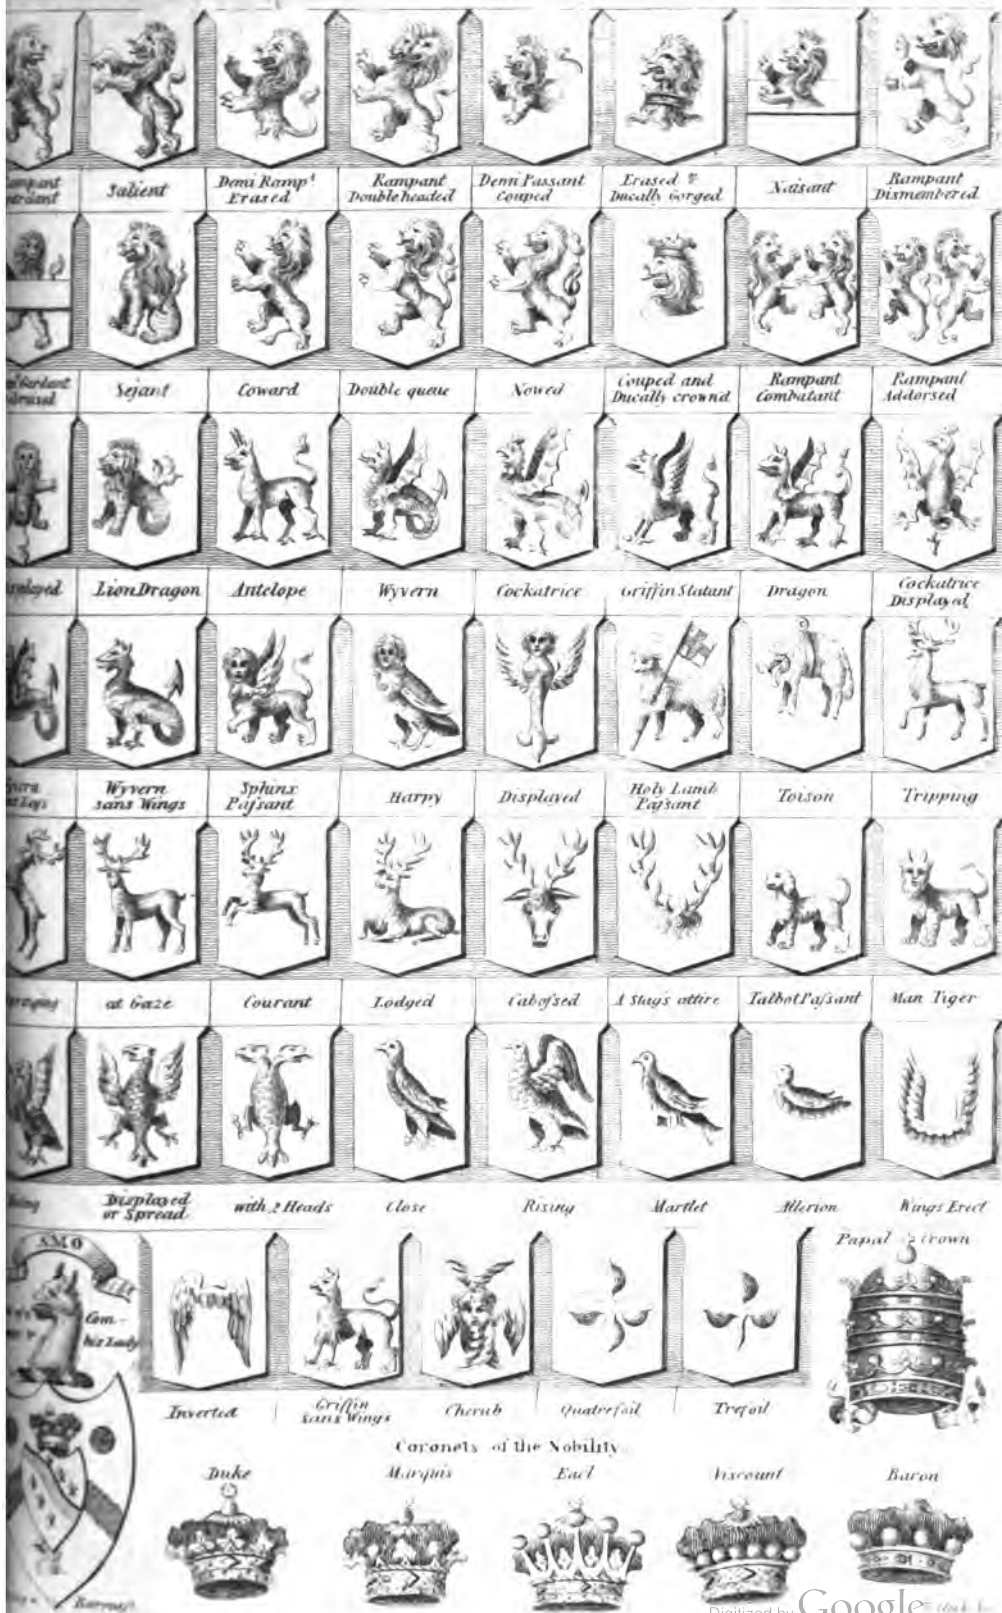 Salient
Demi Rampt
Erased
Rampant
Doubleheaded
Demi Passant
Couped
Erased &
Ducally Gorged
Naisant
Rampant
Dismembered
Sejant
Coward
Double queue
Nowed
Couped and
Ducally crown'd
Rampant
Combatant
Rampant
Addorsed
Lion Dragon
Antelope
Wyvern
Cockatrice
Griffin Statant
Dragon
Cockatrice
Displayed
Wyvern
sans Wings
Sphinx
Paſsant
Harpy
Displayed
Holy Lamb
Paſsant
Toison
Tripping
at Gaze
Courant
Lodged
Caboſsed
A Stag's attire
Talbot Paſsant
Man Tiger
Displayed
or Spread
with 2 Heads
Close
Rising
Martlet
Allerion
Wings Erect
AMO
Papal Crown
Inverted
Griffin
sans Wings
Cherub
Quatrefoil
Trefoil
Coronets of the Nobility
Duke
Marquis
Earl
Viscount
Baron
Digitized by Google